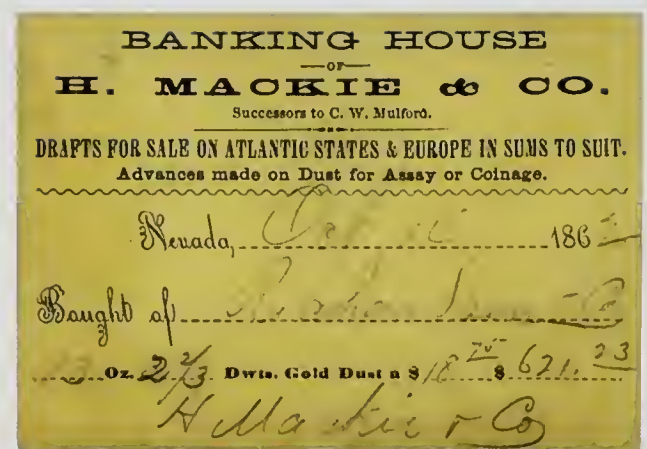 BANKING HOUSE
—OF—
H. MACKIE & CO.
Successors to C. W. Mulford.
DRAFTS FOR SALE ON ATLANTIC STATES & EUROPE IN SUMS TO SUIT.
Advances made on Dust for Assay or Coinage.
Nevada, 186
Bought of Co
Oz. 2 2/3 Dwts. Gold Dust a $18 $621.23
H Mackie & Co